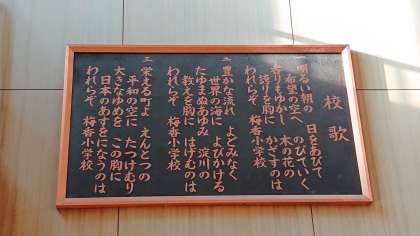 校歌
一 明るい朝の 日をあびて
希望の空へ のびていく
香りもゆかし 木の花の
誇りを胸に かざすのは
われらぞ 梅香小学校
二 豊かな流れ よどみなく
世界の海に よびかける
たゆまぬあゆみ 淀川の
教えを胸に はげむのは
われらぞ 梅香小学校
三 栄える町よ えんとつの
平和の空に たつけむり
大きなゆめを この胸に
日本のあすを になうのは
われらぞ 梅香小学校